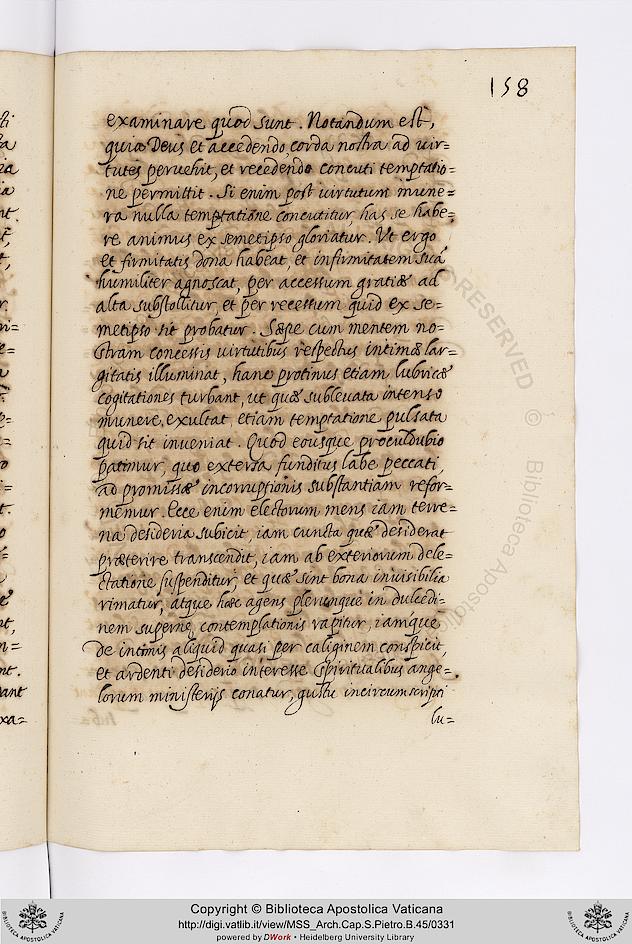 158
examinare quod sunt. Notandum est,
quia Deus et accedendo, corda nostra ad uir=
tutes peruehit, et recedendo concuti temptatio=
ne permittit. Si enim post uirtutum mune=
ra nulla temptatione concutitur, has se habe=
re animus ex semetipso gloriatur. Vt ergo
et firmitatis dona habeat, et infirmitatem suā
humiliter agnoscat, per accessum gratiæ ad
alta substollitur, et per recessum quid ex se=
metipso sit probatur. Sæpe cum mentem no=
stram concessis uirtutibus respectus intimæ lar=
gitatis illuminat, hanc protinus etiam lubricæ
cogitationes turbant, ut quæ subleuata intenso
munere, exultat, etiam temptatione pulsata
quid sit inueniat. Quod eousque proculdubio
patimur, quo extersa funditus labe peccati,
ad promissæ incorruptionis substantiam refor=
memur. Ecce enim electorum mens iam terre=
na desideria subicit, iam cuncta quæ desiderat
præterire transcendit, iam ab exteriorum dele=
ctatione suspenditur, et quæ sint bona inuisibilia
rimatur, atque hæc agens plerunque in dulcedi=
nem supernę contemplationis rapitur, iamque
de intimis aliquid quasi per caliginem conspicit,
et ardenti desiderio interesse spiritualibus ange=
lorum ministerijs conatur, gustu incircumscripti
lu=
ti
ia
nt.
t,
r.
ri=
e=
a
i=
t.
o
e
nt,
n=
nt.
ant
xa=
RESERVED © Biblioteca Apostolica
Copyright © Biblioteca Apostolica Vaticana
http://digi.vatlib.it/view/MSS_Arch.Cap.S.Pietro.B.45/0331
powered by DWork • Heidelberg University Library
BIBLIOTECA APOSTOLICA VATICANA
BIBLIOTECA APOSTOLICA VATICANA